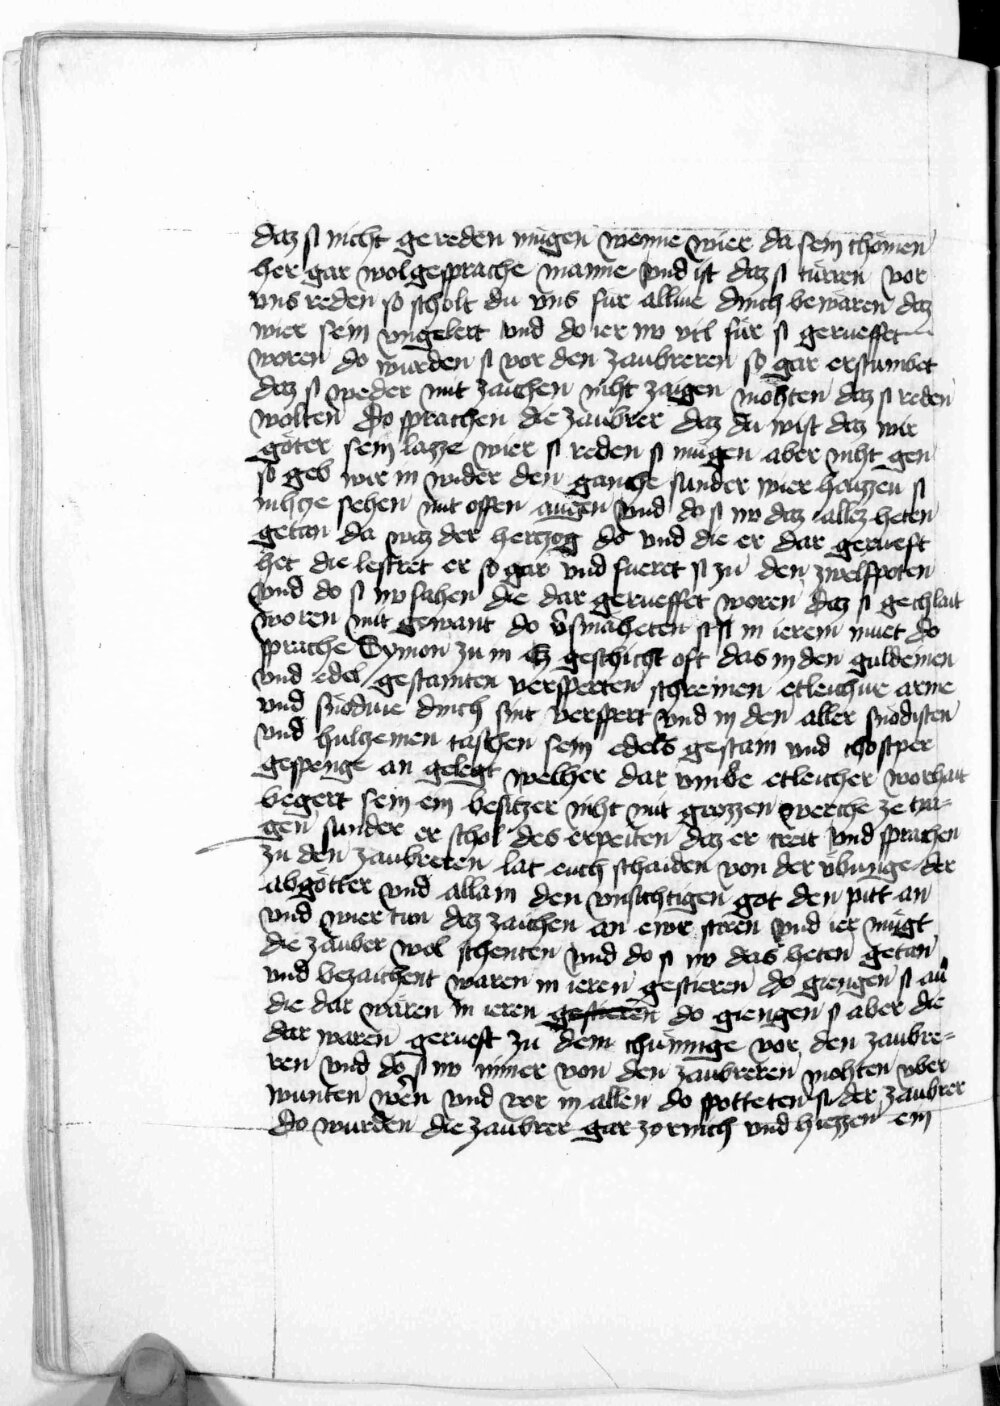 daz si nicht gereden mugen wenne wier da sein chömen
her gar wolgesprache manne vnd ist daz si türren vor
vns reden so scholt du vns für allew dinch bewären daz
wier sein vngelert vnd do ier nv vil für si gerueffet
woren do wurden si vor den zaubreren so gar erstumbet
daz si weder mit zaichen niht zaigen mohten daz si reden
wolten Do sprachen die zaubrer daz du wist daz wir
göter sein lazze wier si reden si mugen aber niht gen
so geb wir in wider den ganche sunder wier hazzen si
nihtze sehen mit offen augen vnd do si nv daz allez heten
getan da waz der hertzog do vnd die er dar gerueft
het die lestret er so gar vnd fueret si zu den zwelfpoten
vnd do si nv sahen die dar gerueffet woren daz si gechlait
woren mit gewant do v̄smaheten si si in ierem muet do
sprache Symon zu in Ez geschicht oft das in den guldeinen
vnd edel gestainten versperten schreinen etleichue arme
vnd snodiue dinch sint verspert vnd in den aller snodisten
vnd hulczeinen taschen sein edels gestain vnd chostper
gespenge an gelegt welher dar vmbe etleicher worhait
begert sein ein besitzer niht mit grozzen werche ze tra=
gen sunder er schol des erpeiten daz er treit vnd sprachen
zu den zaubreren lat euch schaiden von der vbunge der
abgötter vnd allain den vnsichtigen got den pitt an
vnd wier tun daz zaichen an ewr stiren vnd ier mügt
die zauber wol schenten vnd do si nv das heten getan
vnd bezaichent waren in ieren gestieren do giengen si au
die dar wären in ieren gestieren do giengen s aber die
dar waren geruest zu dem chuninge vor den zaubre=
ren vnd do si nv nimer von den zaubreren mohten vber
wunten wērn vnd vor in allen do spotteten si der zaubrer
do wurden die zaubrer gar zornich vnd hiezzen ein